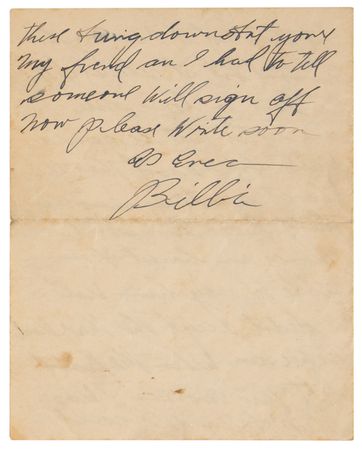 these things down but your
my friend an I had to tell
someone will sign off
now please write soon
As Ever
Billie